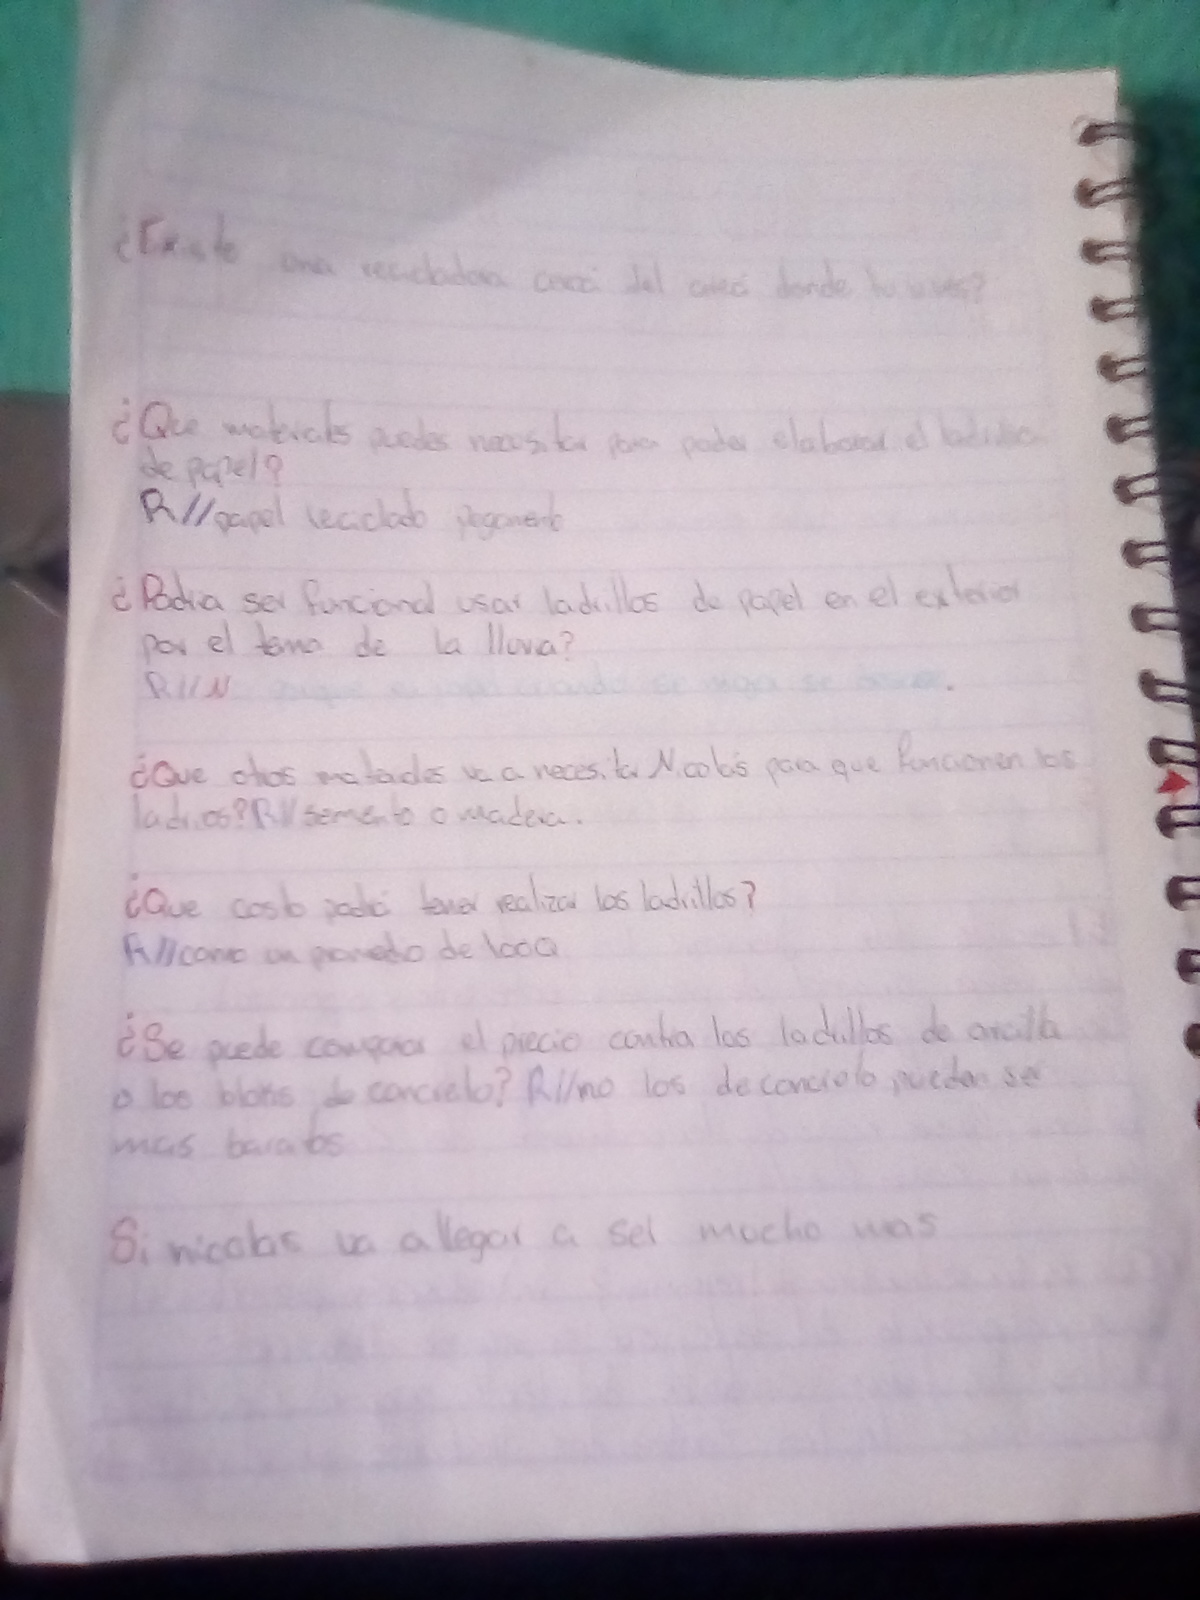 ¿Existe una recicladora cerca del area donde tu vives?
¿Que materiales puedes necesitar para poder elaborar el ladrillo
de papel?
R// papel reciclado pegamento
¿Podria ser funcional usar ladrillos de papel en el exterior
por el tema de la lluvia?
R// N cuando se moja se
¿Que otros materiales va a necesitar Nicolas para que funcionen los
ladrios? R// semento o madera.
¿Que costo podria tener realizar los ladrillos?
R// como un promedio de 100Q
¿Se puede comparar el precio contra los ladrillos de arcilla
o los bloks de concreto? R// no los de concreto pueden ser
mas baratos
Si nicolas va allegar a ser mucho mas